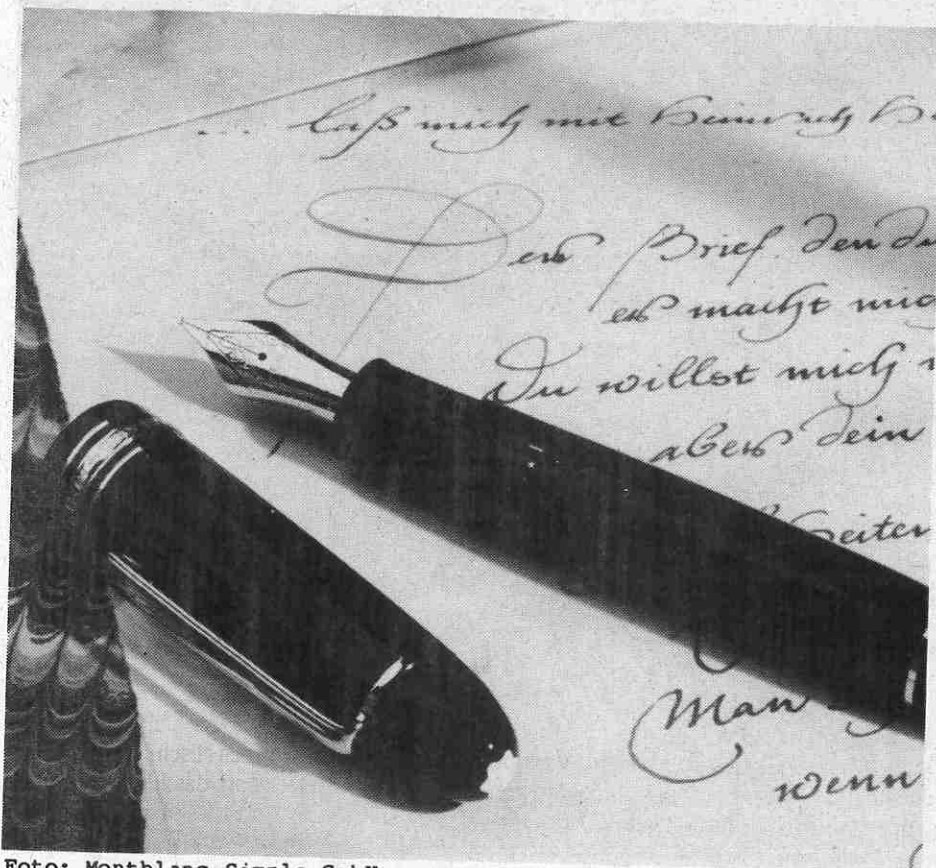 ... laß mich mit Heinrich
Der Brief, den du
er macht mic
Du willst mich
aber dein
Man
wenn
Foto: Montblanc-Simplo GmbH